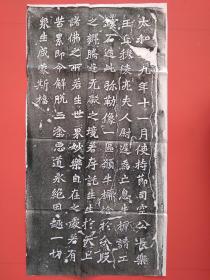 太和十九年十一月使持節司空公長樂
王丘穆陵亮夫人尉遲為亡息牛橛請工
鏤石造此彌勒像一區願牛橛捨於分段
之鄉騰遊無礙之境若存託生生於天上
諸佛之所若生世界妙樂自在之處若有
苦累即令解脫三塗惡道永絕因趣一切
眾生咸蒙斯福